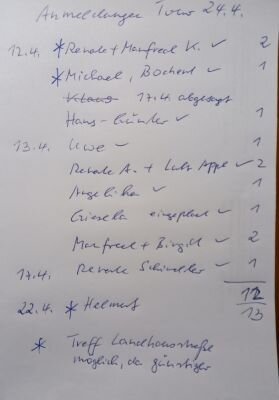 Anmeldungen Tour 24.4.
12.4. * Renate + Manfred K. ✓ 2
* Michael, Bochert ✓ 1
~~Klaus~~ 17.4. abgesagt
Hans-Günter ✓ 1
13.4. Uwe ✓ 1
Renate A. + Lutz Appel ✓ 2
Angelika ✓ 1
Gisela eingeplant ✓ 1
Manfred + Birgitt ✓ 2
17.4. Renate Schindler ✓ 1
12
22.4. * Helmut 13
* Treff Landhausstraße
möglich, da günstiger